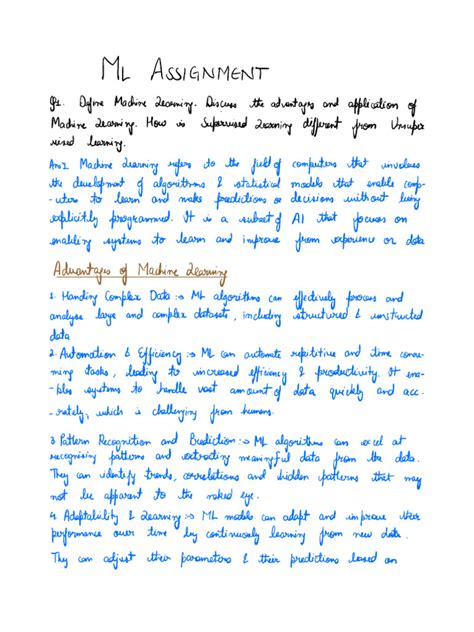 ML ASSIGNMENT
Q1. Define Machine Learning. Discuss the advantages and application of
Machine Learning. How is Supervised Learning different from Unsuper
vised learning.
Ans1. Machine Learning refers to the field of computers that involves
the development of algorithms & statistical models that enable comp-
-uters to learn and make predictions or decisions without being
explicitly programmed. It is a subset of AI that focuses on
enabling systems to learn and improve from experience or data
Advantages of Machine Learning
1. Handing Complex Data :-> ML algorithms can effectively process and
analyse large and complex dataset, including structured & unstructed
data
2. Automation & Efficiency :-> ML can automate repititive and time consu-
ming tasks, leading to increased efficiency & productivity. It ena-
-bles systems to handle vast amount of data quickly and acc-
-rately, which is challenging from humans.
3. Pattern Recognition and Prediction :-> ML algorithms can excel at
recognising patterns and extracting meaningful data from the data.
They can identify trends, correlations and hidden patterns that may
not be apparent to the naked eye.
4. Adaptability & Learning :-> ML models can adapt and improve their
performance over time by continuously learning from new data.
They can adjust their parameters & their predictions based on